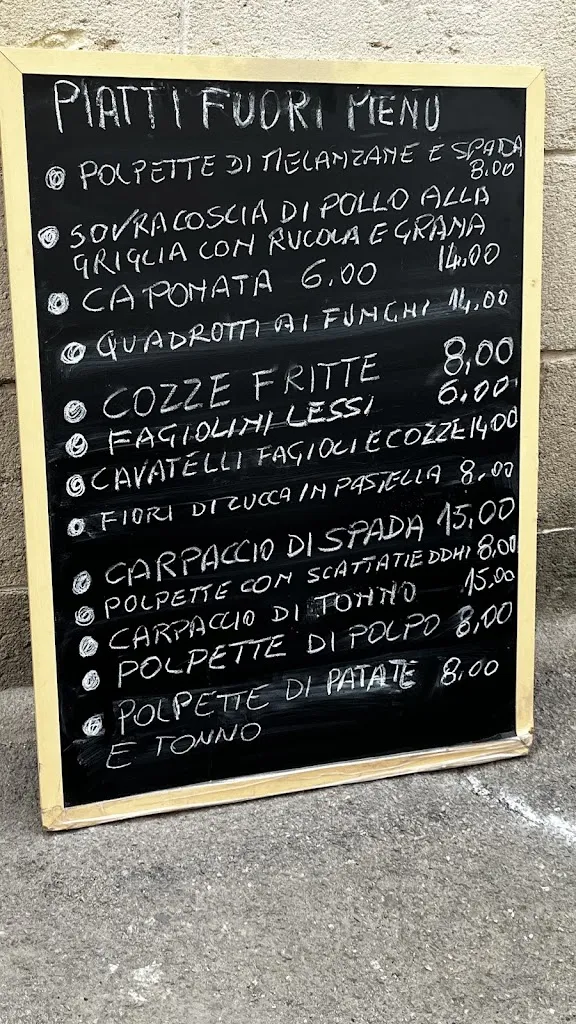 PIATTI FUORI MENU
POLPETTE DI MELANZANE E SPADA
8.00
SOVRACOSCIA DI POLLO ALLA
GRIGLIA CON RUCOLA E GRANA
14.00
CAPONATA 6.00
QUADROTTI AI FUNGHI 14.00
COZZE FRITTE 8,00
FAGIOLINI LESSI 6.00
CAVATELLI FAGIOLI E COZZE 14,00
FIORI DI ZUCCA IN PASTELLA 8.00
CARPACCIO DI SPADA 15,00
POLPETTE CON SCATTATIEDDHI 8,00
CARPACCIO DI TONNO 15.00
POLPETTE DI POLPO 8,00
POLPETTE DI PATATE 8.00
E TONNO